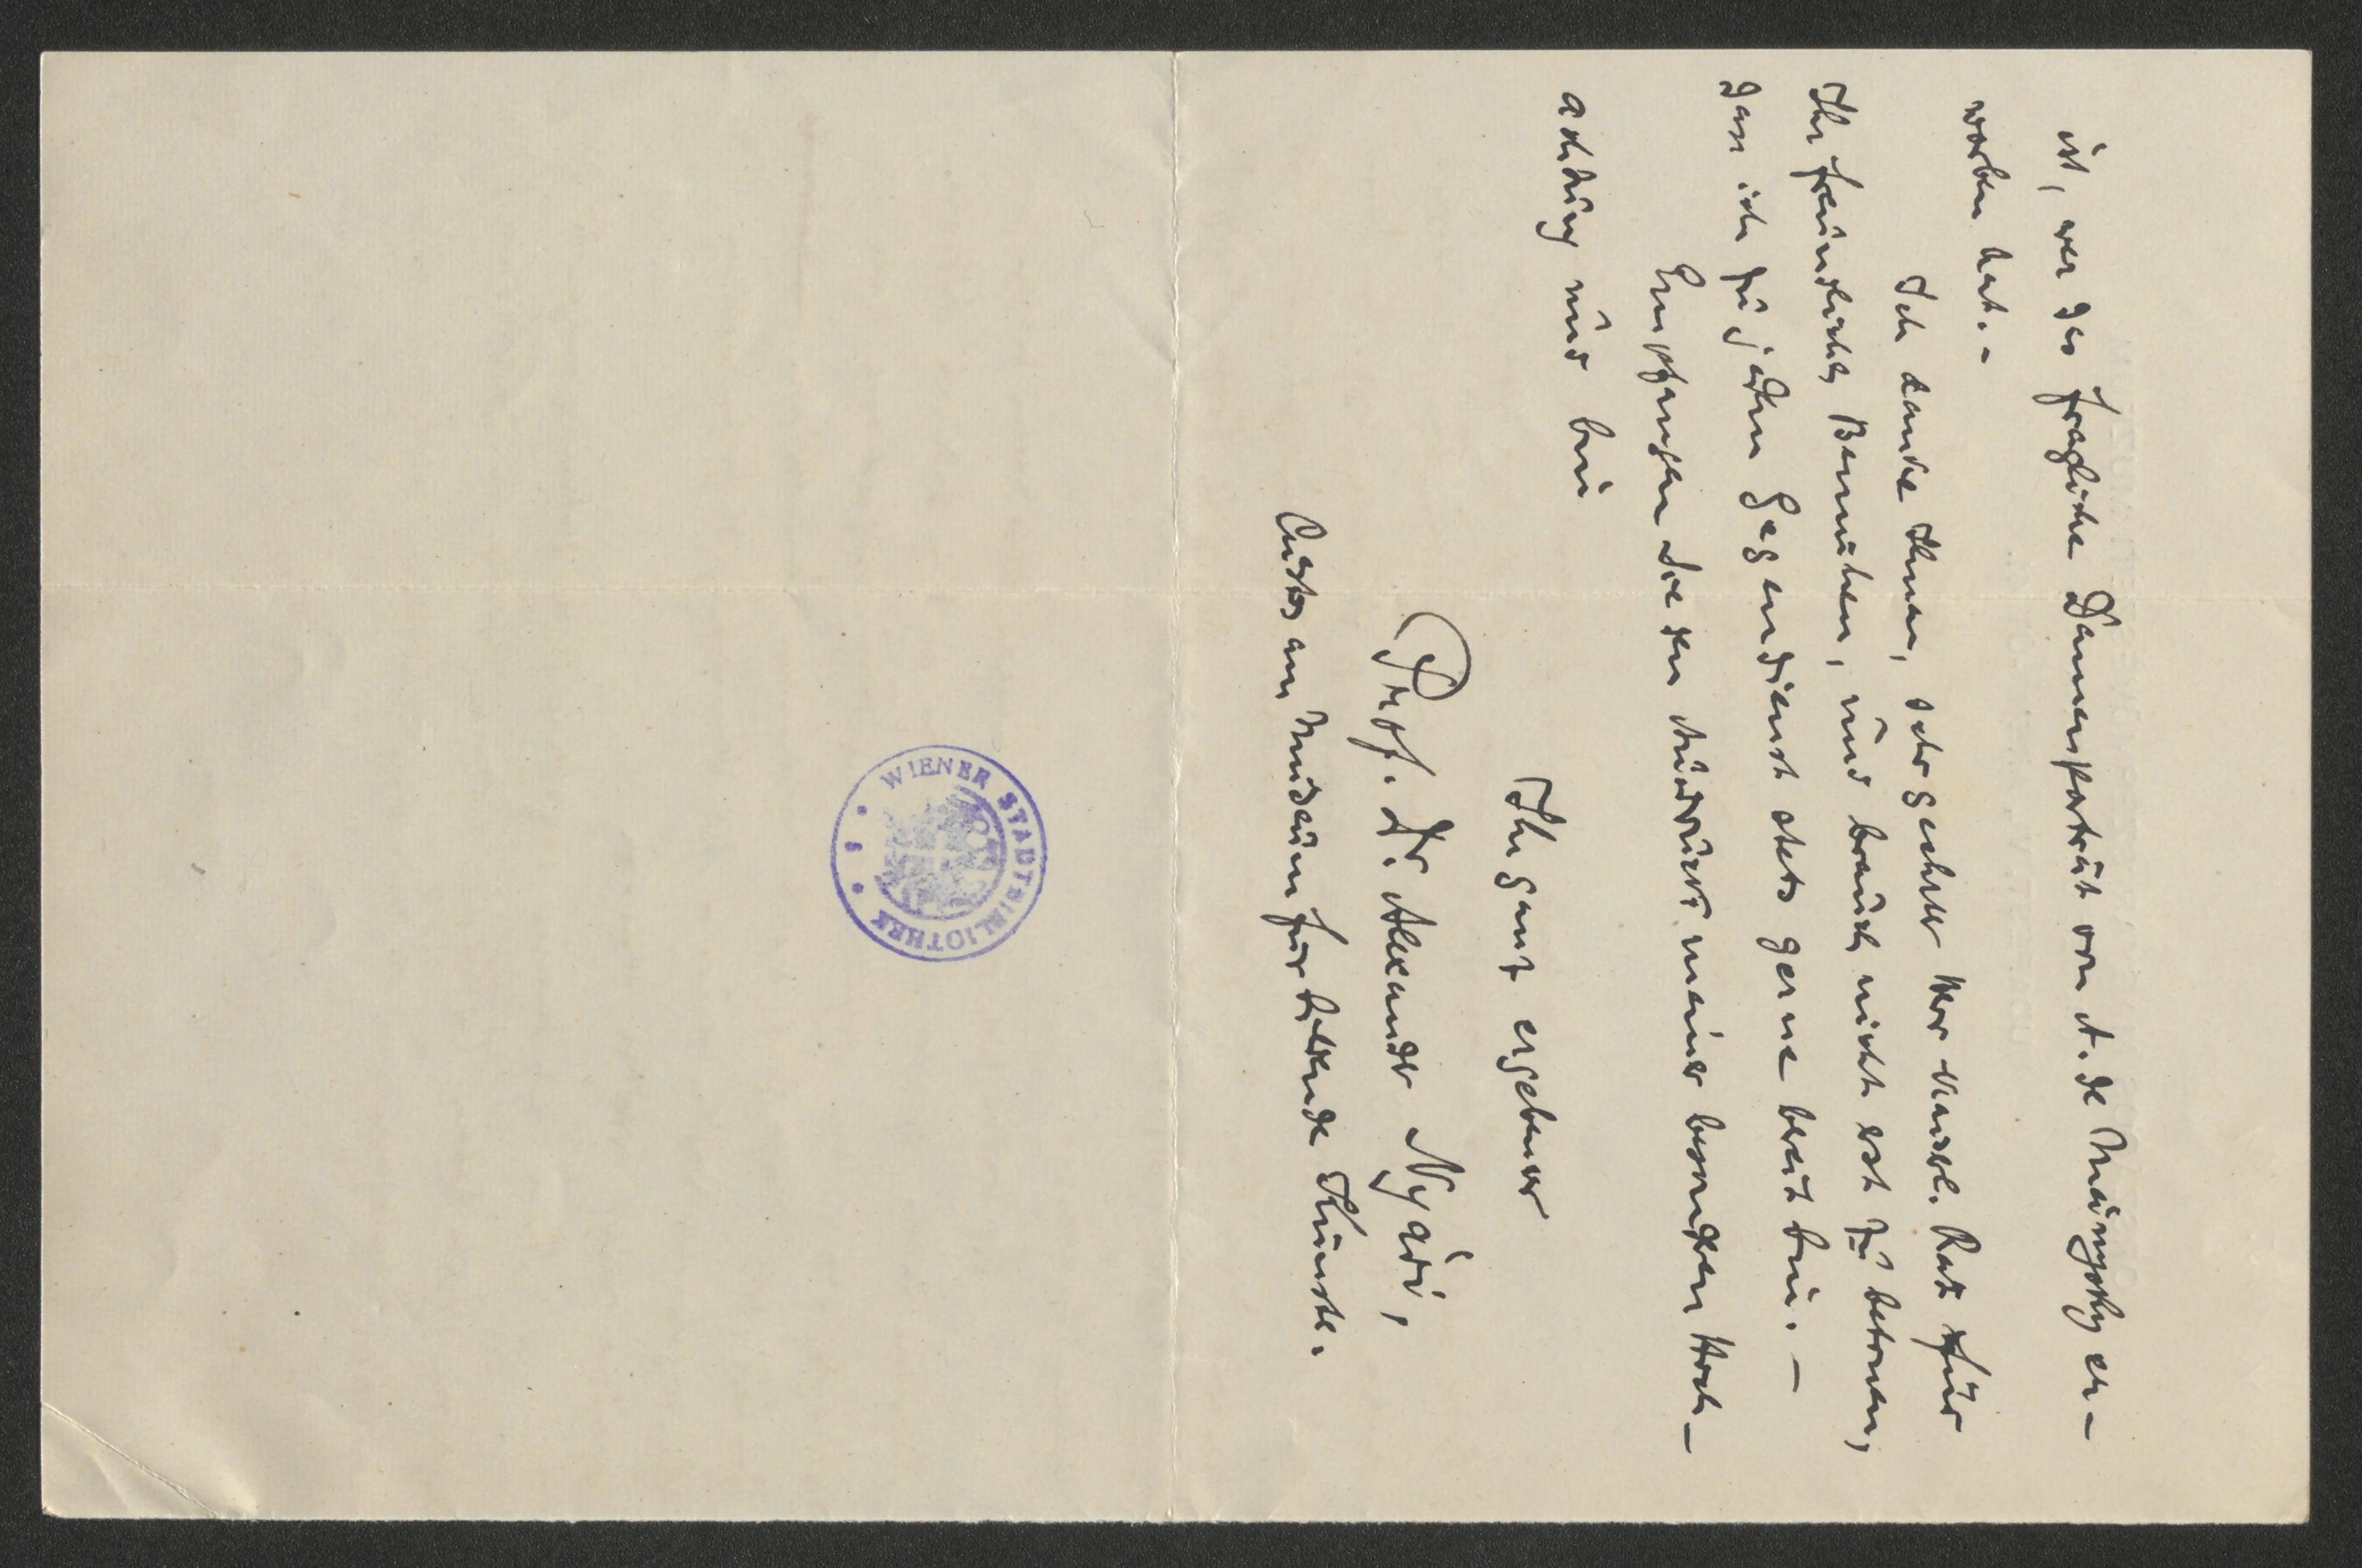 ist, wer das fragliche Damenporträt von A. de Muingsthy er-
worben hat. -
Ich danke Ihnen, sehr geehrter Herr Kaiserl. Rat für
Ihr freundliches Bemühen, und brauch nicht erst zu betonen,
dass ich zu jedem Gegendienst stets gerne bereit bin. -
Empfangen Sie den Ausdruck meiner besonderen Hoch-
achtung und bin
Ihr ganz ergebener
Prof. Dr. Alexander Nyári,
Custos am Museum für bildende Künste.
WIENER STADTBIBLIOTHEK